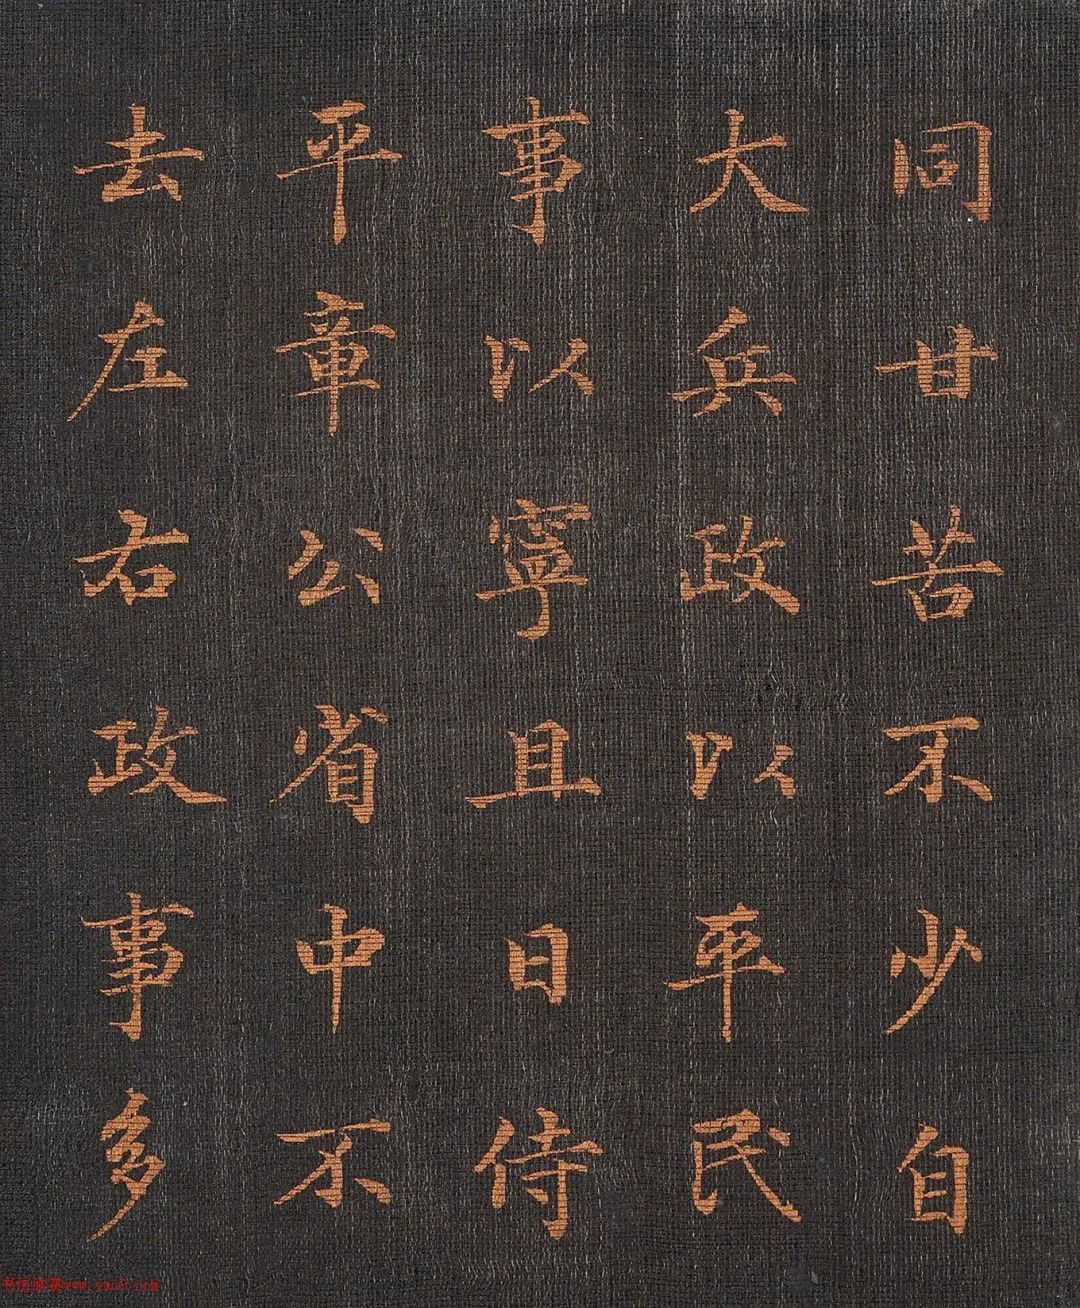 同甘苦不少自
大兵政以平民
事以寧且日侍
平章公省中不
去左右政事多
书法欣赏www.yac8.com